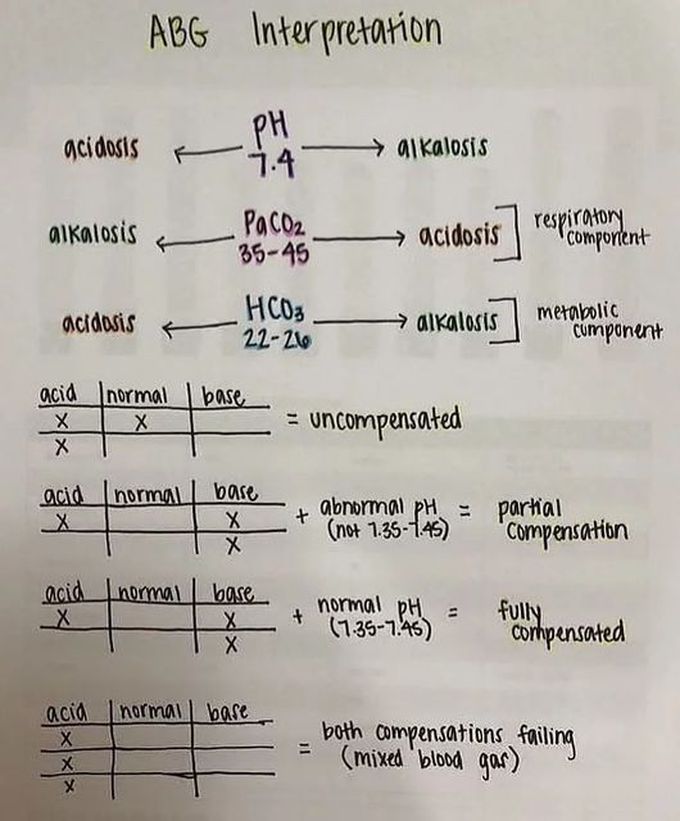 ABG Interpretation
acidosis ← pH → alkalosis
7.4
alkalosis ← PaCO₂ → acidosis] respiratory
35-45 component
acidosis ← HCO₃ → alkalosis] metabolic
22-26 component
acid normal base
X X = uncompensated
X
acid normal base
X X + abnormal pH = partial
X (not 7.35-7.45) compensation
acid normal base
X X + normal pH = fully
X (7.35-7.45) compensated
acid normal base
X = both compensations failing
X (mixed blood gas)
X